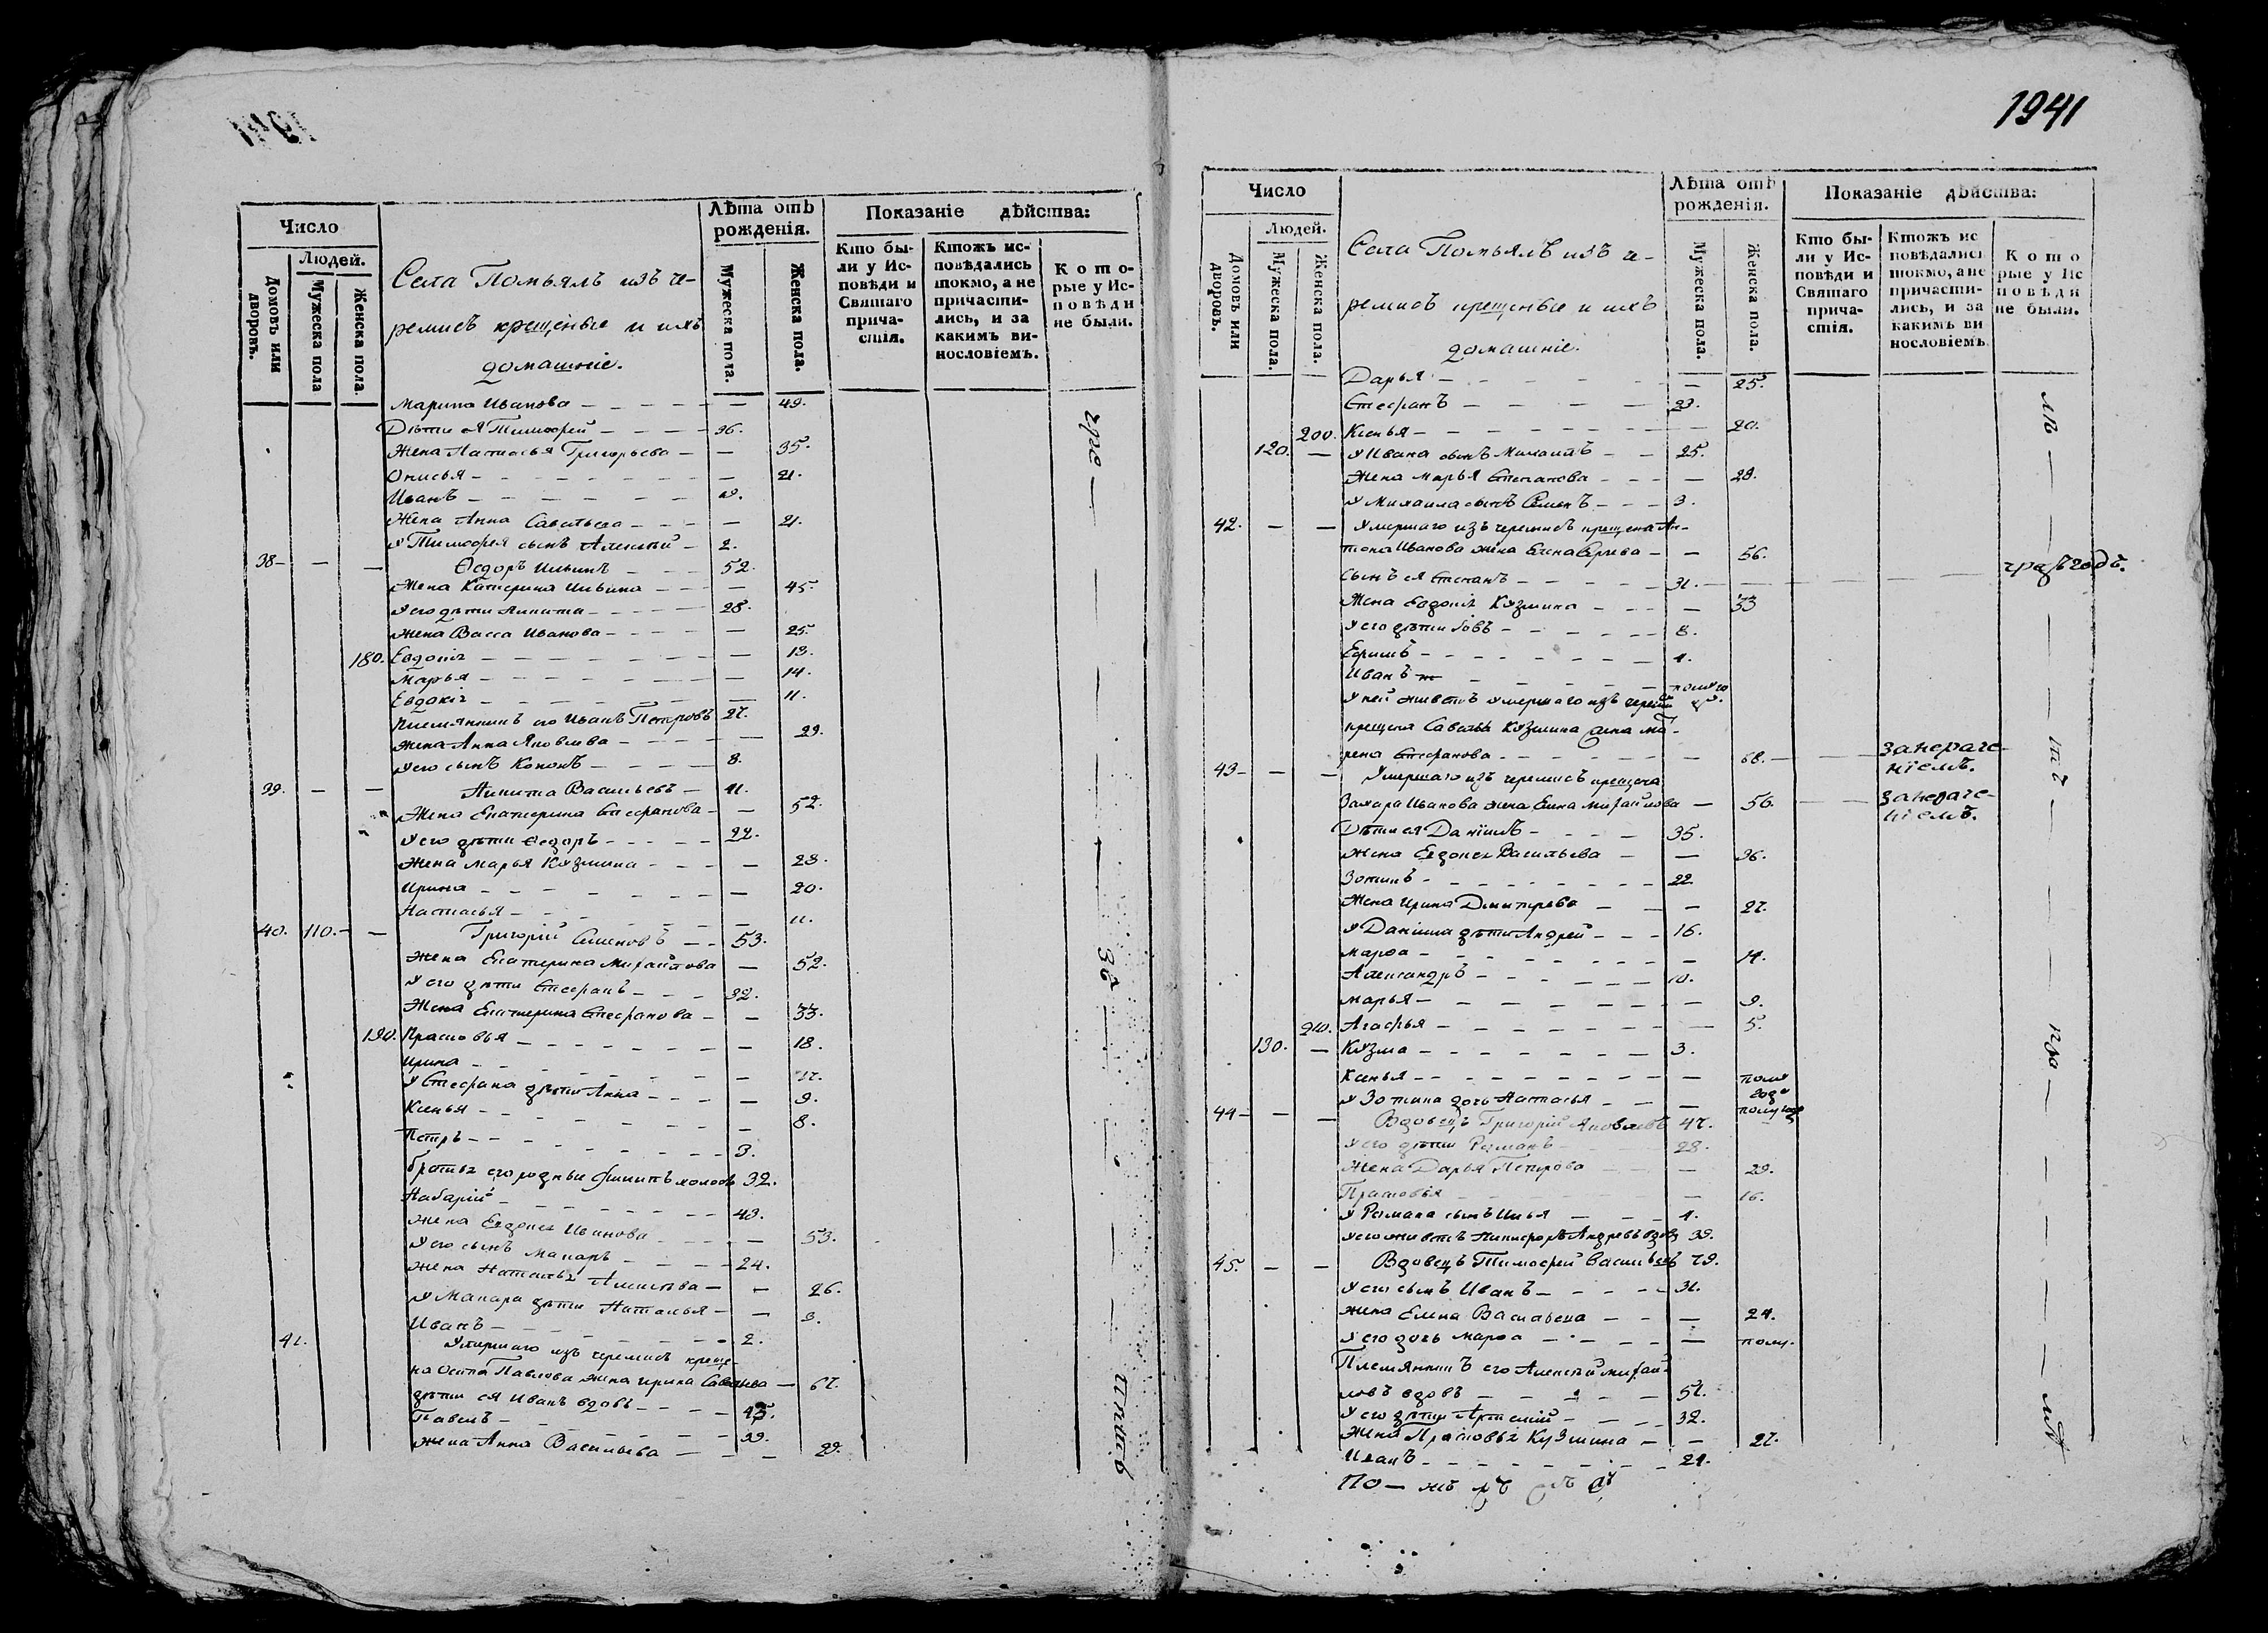 Число
Людей.
Домовъ или дворовъ.
Мужеска пола
Женска пола.
Села Помьялъ изъ че-
ремисъ крещеные и ихъ
домашніе.
Лѣта отъ
рожденія.
Мужеска пола.
Женска пола.
Показаніе дѣйства:
Кто бы-
ли у Ис-
повѣди и
Святаго
прича-
стія.
Ктожъ ис-
повѣдались
токмо, а не
причасти-
лись, и за
какимъ ви-
нословіемъ.
Кото-
рые у Ис-
повѣди
не были.
Марина Иванова — — 49.
Дѣти ея Тимофей — 36.
Жена Настасья Григорьева — — 35.
Онисья — — 21.
Иванъ —
Жена Анна Савельева — — 21.
У Тимофея сынъ Алексѣй — 2.
38 — — — Ѳедоръ Ильинъ — 52.
Жена Катерина Ильина — — 45.
У его дѣти Никита — 28.
Жена Васса Иванова — — 25.
180. Евдокія — —
Марья — — 14.
Евдокія — — 11.
Племянникъ его Иванъ Петровъ 27.
Жена Анна Яковлева — — 29.
У его сынъ Кононъ — 8.
39. — — Никита Васильевъ — 41.
Жена Екатерина Стефанова — — 52.
У его дѣти Ѳедоръ — 22.
Жена Марья Козмина — — 23.
Ирина — — 20.
Настасья — — 11.
40. 110. — Григорій Семеновъ — 53.
Жена Екатерина Михайлова — 52.
У его дѣти Стефанъ — 32.
Жена Екатерина Стефанова — — 33.
190. Прасковья — — 18.
Ирина — —
У Стефана дѣти Анна — — 9.
Ксенья — — 8.
Петръ — 3.
братья его родные Филипъ холостъ 32.
Макарій — 43.
Жена Евдокія Иванова — — 53.
У его сынъ Макаръ — 24.
Жена Наталья Алексѣева — — 26.
У Макара дѣти Наталья — — 3.
Иванъ — 2.
41. Умершаго изъ черемисъ креще-
на Осипа Павлова жена Ирина Савельева — 67.
дѣти ея Иванъ вдовъ — 45.
Павелъ — 39.
Жена Анна Васильева — — 29.
1941
Число
Людей.
Домовъ или дворовъ.
Мужеска пола.
Женска пола.
Села Помьялъ изъ че-
ремисъ крещеные и ихъ
домашніе.
Лѣта отъ
рожденія.
Мужеска пола.
Женска пола.
Показаніе дѣйства:
Кто бы-
ли у Ис-
повѣди и
Святаго
прича-
стія.
Ктожъ ис
повѣдались
токмо, а не
причасти-
лись, и за
какимъ ви
нословіемъ
Кото
рые у Ис
повѣди
не были.
Дарья — — 25.
Стефанъ — 23.
200. Ксенья — — 20.
120. — У Ивана сынъ Михаилъ — 25.
Жена Марья Степанова — — 28.
У Михаила сынъ Семенъ — 3.
42. — — Умершаго изъ черемисъ крещена Ан-
тона Иванова жена Елена — — 56.
сынъ ея Степанъ — 31. —
Жена Евдокія Козмина — — 33
У его дѣти — 8.
Ефимъ — 4.
Иванъ — полуго
У ней живетъ умершаго изъ черемисъ
крещена Савелья Козмина жена Ма-
рена Стефанова — — 68. — за нераче-
ніемъ.
43 — — — Умершаго изъ черемисъ крещена
Захара Иванова жена Елена Михайлова — 50. — за нераче-
ніемъ.
Дѣти ея Даніилъ — 35.
Жена Евдокія Васильева — — 36.
Зотикъ — 22
Жена Ирина Дмитрева — — 27.
У Даніила дѣти Андрей — 16.
Марѳа — — 14.
Александръ — 10.
Марья — — 9.
210. Агафья — — 5.
130. — Козма — 3.
Ксенья — — полу
года
У Зотика дочь Настасья — — полугода
44 — — — Вдовецъ Григорій Яковлевъ 47.
У его дѣти Романъ — 28.
Жена Дарья Петрова — 29.
Прасковья — 16.
У Романа сынъ Илья — 4.
У его живетъ Никифоръ Андреевъ вдовъ 39.
45. — — Вдовецъ Тимофей Васильевъ 79.
У его сынъ Иванъ — 31.
Жена Елена Васильева — — 24.
У его дочь Марѳа — — полу.
Племянникъ его Алексѣй Михай-
ловъ вдовъ — 51.
У его дѣти Артемій — 32.
Жена Прасковья Кузмина — — 27.
Иванъ — 21.